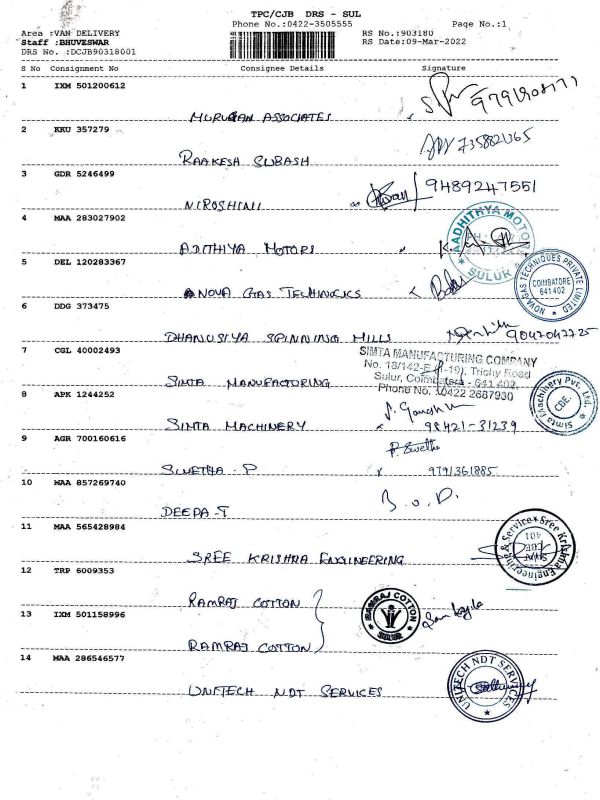 TPC/CJB DRS - SUL
Phone No.:0422-3505555 Page No.:1
Area :VAN DELIVERY RS No.:903180
Staff :BHUVESWAR RS Date:09-Mar-2022
DRS No. :DCJB90318001
S No Consignment No Consignee Details Signature
1 IXM 501200612
MURUGAN ASSOCIATES
2 KKU 357279
RAAKESH SUBASH 7358821365
3 GDR 5246499
NIROSHINI 9489247551
4 MAA 283027902
ADITHIYA MOTORS
AADHITHYA MOTO
SULUR
5 DEL 120283367
NOVA GAS TECHNOLICS
NOVA GAS TECHNIQUES PRIVATE LIMITED
COIMBATORE
641 402
6 DDG 373475
DHANUSIYA SPINNING MILLS 9047047725
7 CGL 40002493
SIMTA MANUFACTURING COMPANY
No. 18/142-E Trichy Road
Sulur, Coimbatore - 641 402.
Phone No.:0422 2687930
SIMTA MANUFACTORING
8 APK 1244252
SIMTA MACHINERY 98421-31239
Simta Machinery Pvt. Ltd.
CBE.
9 AGR 700160616
P. Swetha
SWETHA . P 9791361885
10 MAA 857269740
DEEPA-T
B.O.D.
11 MAA 565428984
SREE KRISHNA ENGINEERING
Sree Krishna Engineering & Service
12 TRP 6009353
RAMRAJ COTTON
RAMRAJ COTTON
SULUR
13 IXM 501158996
RAMRAJ COTTON
14 MAA 286546577
UNITECH NDT SERVICES
UNITECH NDT SERVICES